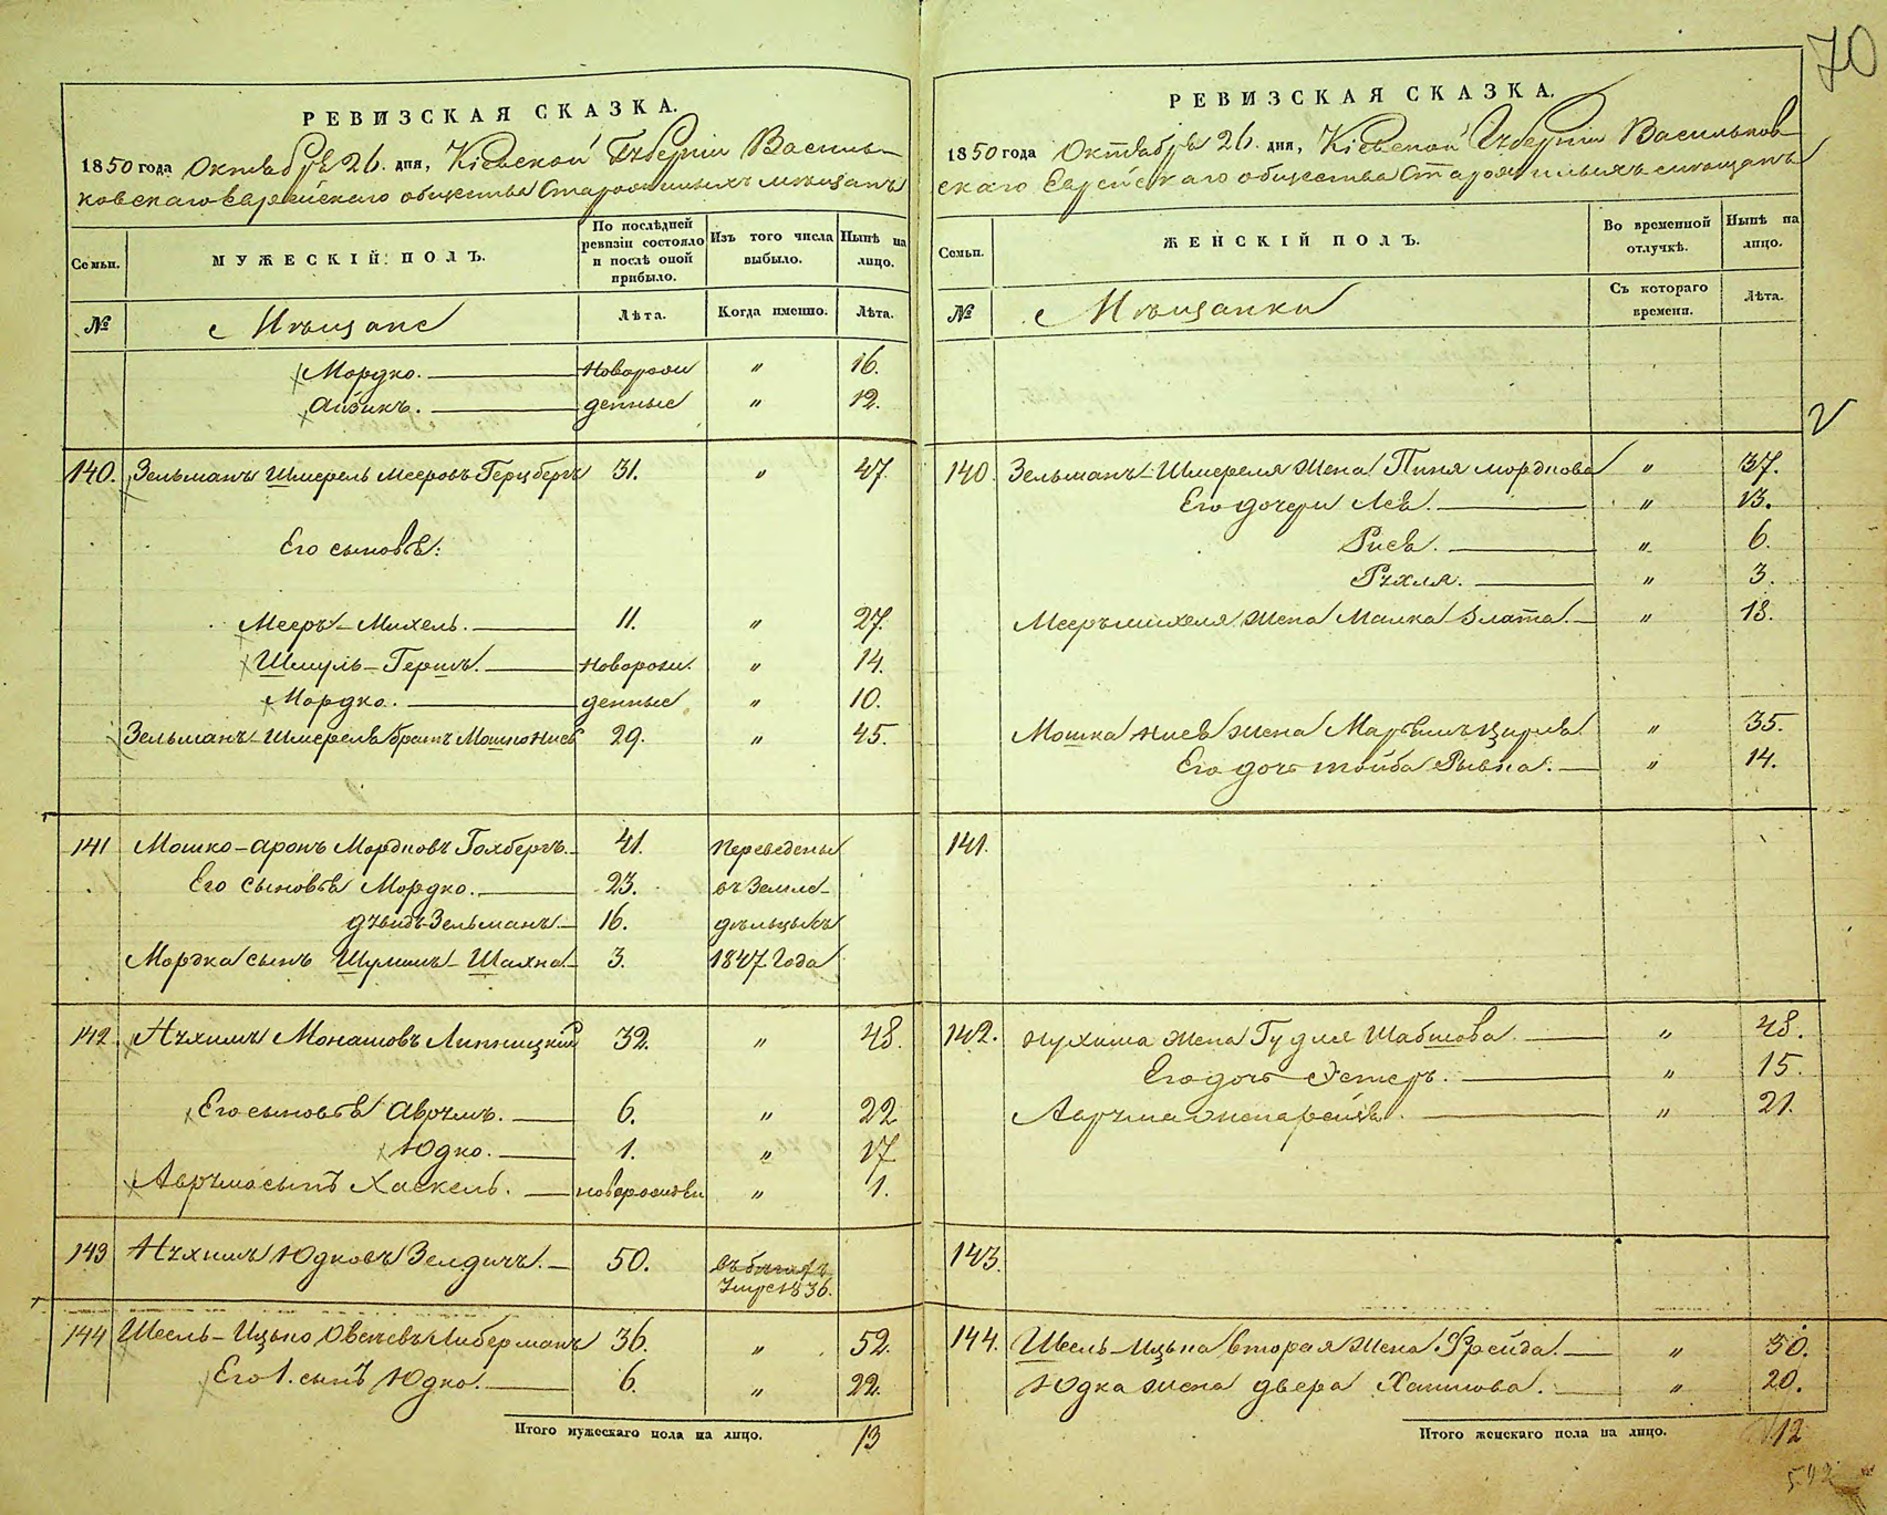 70
РЕВИЗСКАЯ СКАЗКА.
1850 года Октября 26. дня, Кіевской Губерніи Василь-
ковскаго Еврейскаго общества Старожилыхъ мѣщанъ
Семьи.
МУЖЕСКІЙ ПОЛЪ.
По послѣдней ревизіи состояло и послѣ оной прибыло.
Изъ того числа выбыло.
Нынѣ на лицо.
№
Мѣщане
Лѣта.
Когда именно.
Лѣта.
Мордко. новорож „ 16.
Айзикъ. денные „ 12.
140. Зельманъ Шмерель Мееровъ Герцбергъ 31. „ 47.
Его сыновья:
Мееръ-Михель. 11. „ 27.
Шмуль-Гершъ. новорож. „ 14.
Мордко. денные „ 10.
Зельманъ-Шмереля братъ Мошко 29. „ 45.
141 Мошко-Аронъ Мордковъ Голбергъ. 41. Переведены
Его сыновья Мордко. 23. въ Земле-
Зельманъ. 16. дѣльцы въ
Мордка сынъ Шулимъ-Шахна. 3. 1847 Года
142. Нухимъ Монашовъ Липницкій 32. „ 48.
Его сыновья Аврумъ. 6. „ 22
Юдко. 1. „ 17
Аврума сынъ Хаскель. „ 1.
143 Нухимъ Юдковъ Зелдичъ. 50. 1836.
144 Шсель-Ицько Либерманъ 36. „ 52.
Его 1. сынъ Юдко. 6. „ 22.
Итого мужескаго пола на лицо. 13
РЕВИЗСКАЯ СКАЗКА.
1850 года Октября 26. дня, Кіевской Губерніи Васильков-
скаго Еврейскаго общества Старожилыхъ мѣщанъ
Семьи.
ЖЕНСКІЙ ПОЛЪ.
Во временной отлучкѣ.
Нынѣ на лицо.
№
Мѣщанки
Съ котораго времени.
Лѣта.
140. Зельманъ-Шмереля жена Пиня Мордкова „ 37.
Его дочери Лея. „ 13.
Рися. „ 6.
Рухля. „ 3.
Мееръ михеля жена Малка Злата. „ 18.
Мошка жена „ 35.
Его дочь Тойба Рывка. „ 14.
141.
142. Нухима жена Гудля Шабшова. „ 48.
Его дочь Эстеръ. „ 15.
Аврума жена Рейзя. „ 21.
143.
144. Шсель-Ицька вторая жена Фрейда. „ 50.
Юдка жена Двера Хаимова. „ 20.
Итого женскаго пола на лицо. 12